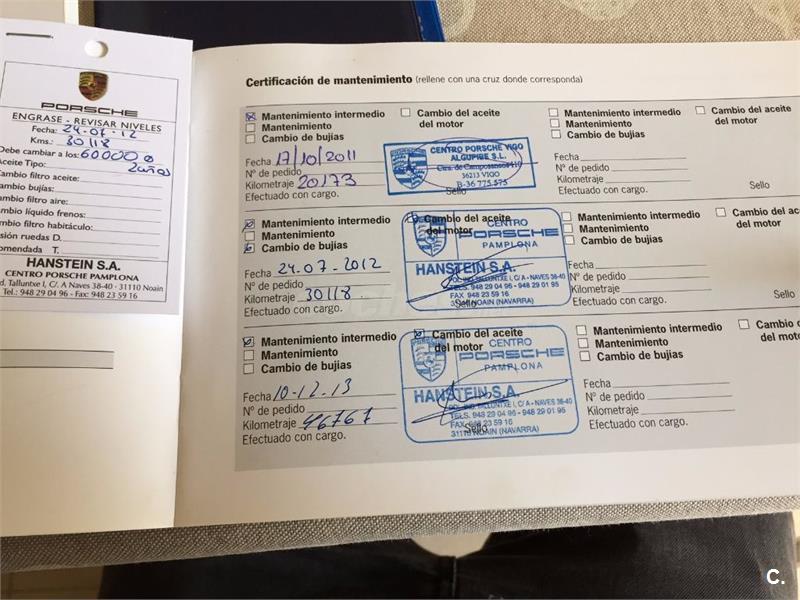 PORSCHE
ENGRASE - REVISAR NIVELES
Fecha: 24-07-12
Kms.: 30118
Debe cambiar a los: 60000 ó
Aceite Tipo: 2años
Cambio filtro aceite:
Cambio bujías:
Cambio filtro aire:
Cambio líquido frenos:
Cambio filtro habitáculo:
esión ruedas D.
omendada T.
HANSTEIN S.A.
CENTRO PORSCHE PAMPLONA
d. Talluntxe I, C/. A Naves 38-40 - 31110 Noain
Tel.: 948 29 04 96 - Fax: 948 23 59 16
Certificación de mantenimiento (rellene con una cruz donde corresponda)
Mantenimiento intermedio
Mantenimiento
Cambio de bujías
Cambio del aceite
del motor
Fecha 17/10/2011
Nº de pedido
Kilometraje 20173
Efectuado con cargo.
Sello
CENTRO PORSCHE VIGO
ALGUPIBE S.L.
36213 VIGO
B-36 775 575
Mantenimiento intermedio
Mantenimiento
Cambio de bujías
Cambio del aceite
del motor
Fecha
Nº de pedido
Kilometraje
Efectuado con cargo.
Sello
Mantenimiento intermedio
Mantenimiento
Cambio de bujías
Cambio del aceite
del motor
Fecha 24-07-2012
Nº de pedido
Kilometraje 30118
Efectuado con cargo.
Sello
CENTRO
PORSCHE
PAMPLONA
HANSTEIN S.A.
POL. IND. TALLUNTXE I, C/ A - NAVES 38-40
TELS. 948 29 04 96 - 948 29 01 95
FAX 948 23 59 16
31110 NOAIN (NAVARRA)
Mantenimiento intermedio
Mantenimiento
Cambio de bujías
Cambio del aceite
del motor
Fecha
Nº de pedido
Kilometraje
Efectuado con cargo.
Sello
Mantenimiento intermedio
Mantenimiento
Cambio de bujías
Cambio del aceite
del motor
Fecha 10-12-13
Nº de pedido
Kilometraje 46767
Efectuado con cargo.
Sello
CENTRO
PORSCHE
PAMPLONA
HANSTEIN S.A.
POL. IND. TALLUNTXE I, C/ A - NAVES 38-40
TELS. 948 29 04 96 - 948 29 01 95
FAX 948 23 59 16
31110 NOAIN (NAVARRA)
Mantenimiento intermedio
Mantenimiento
Cambio de bujías
Cambio d
del moto
Fecha
Nº de pedido
Kilometraje
Efectuado con cargo.
C.